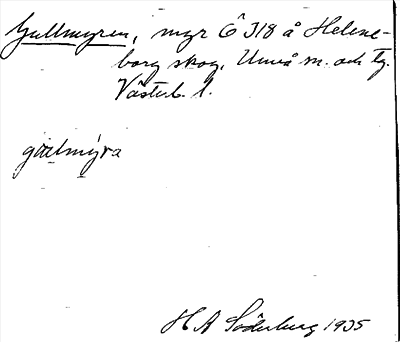 Gullmyren, myr Ö 318 å Helene-
borg skog, Umeå sn. och tg.
Västerb. l.
gɷlmýra
H A Söderberg 1935